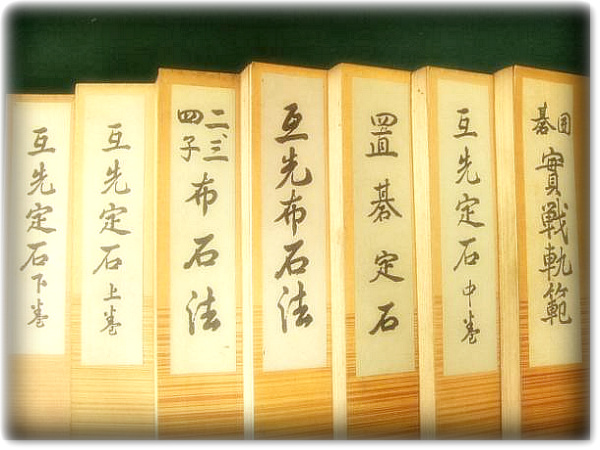 囲碁
實戦軌範
互先定石中巻
置碁定石
互先布石法
二、三、
四子
布石法
互先定石上巻
互先定石下巻